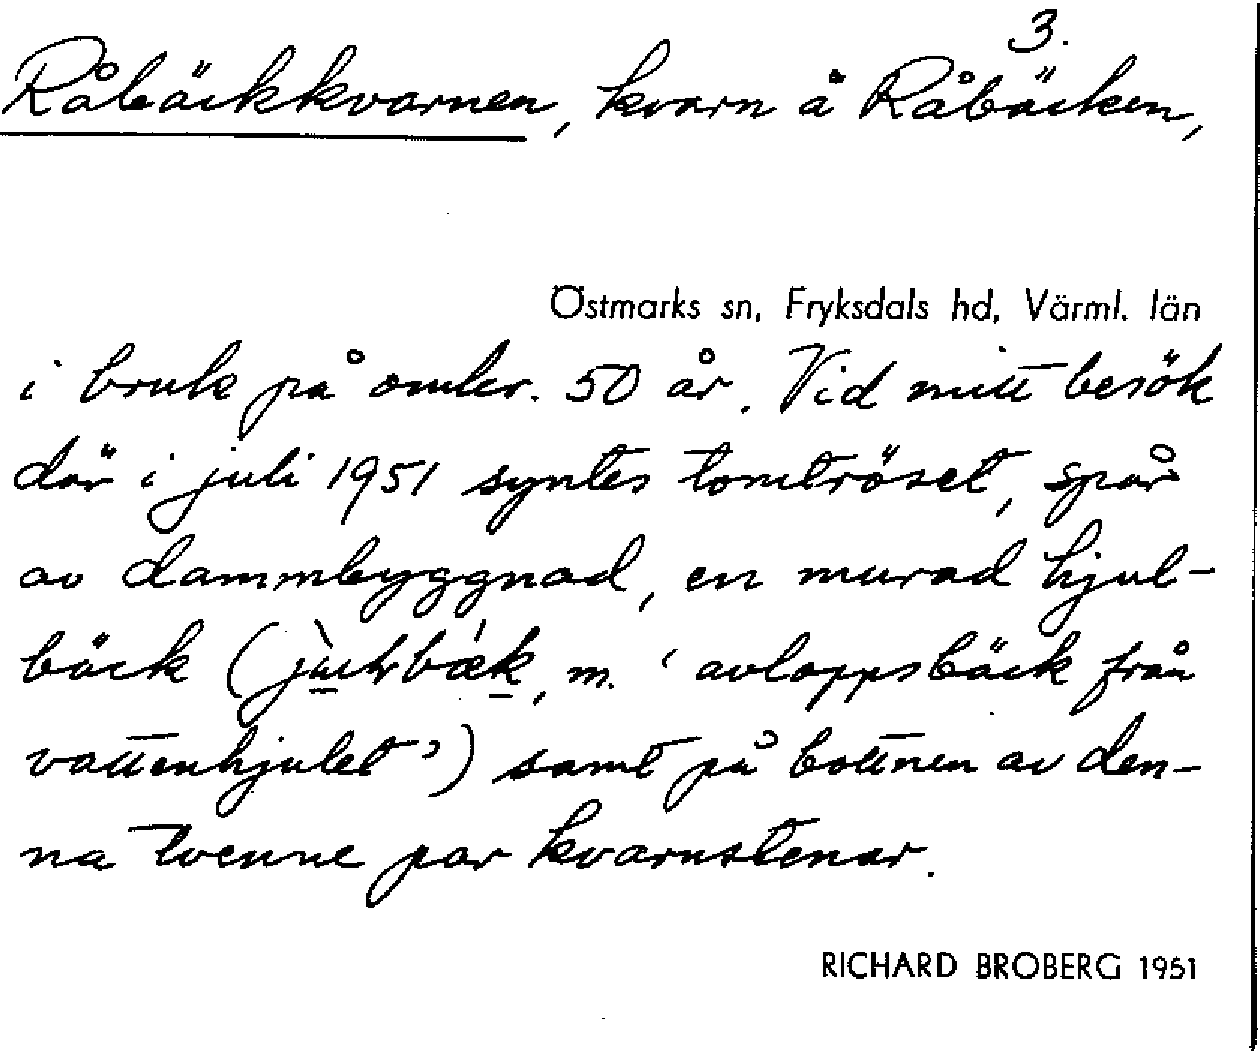 3.
Råbäckkvarnen, kvarn å Råbäcken,
Östmarks sn, Fryksdals hd, Värml. län
i bruk på omkr. 50 år. Vid mitt besök
där i juli 1951 syntes tomtröset, spår
av dammbyggnad, en murad hjul-
bäck (, m. 'avloppsbäck från
vattenhjulet') samt på bottnen av den-
na tvenne par kvarnstenar.
RICHARD BROBERG 1951